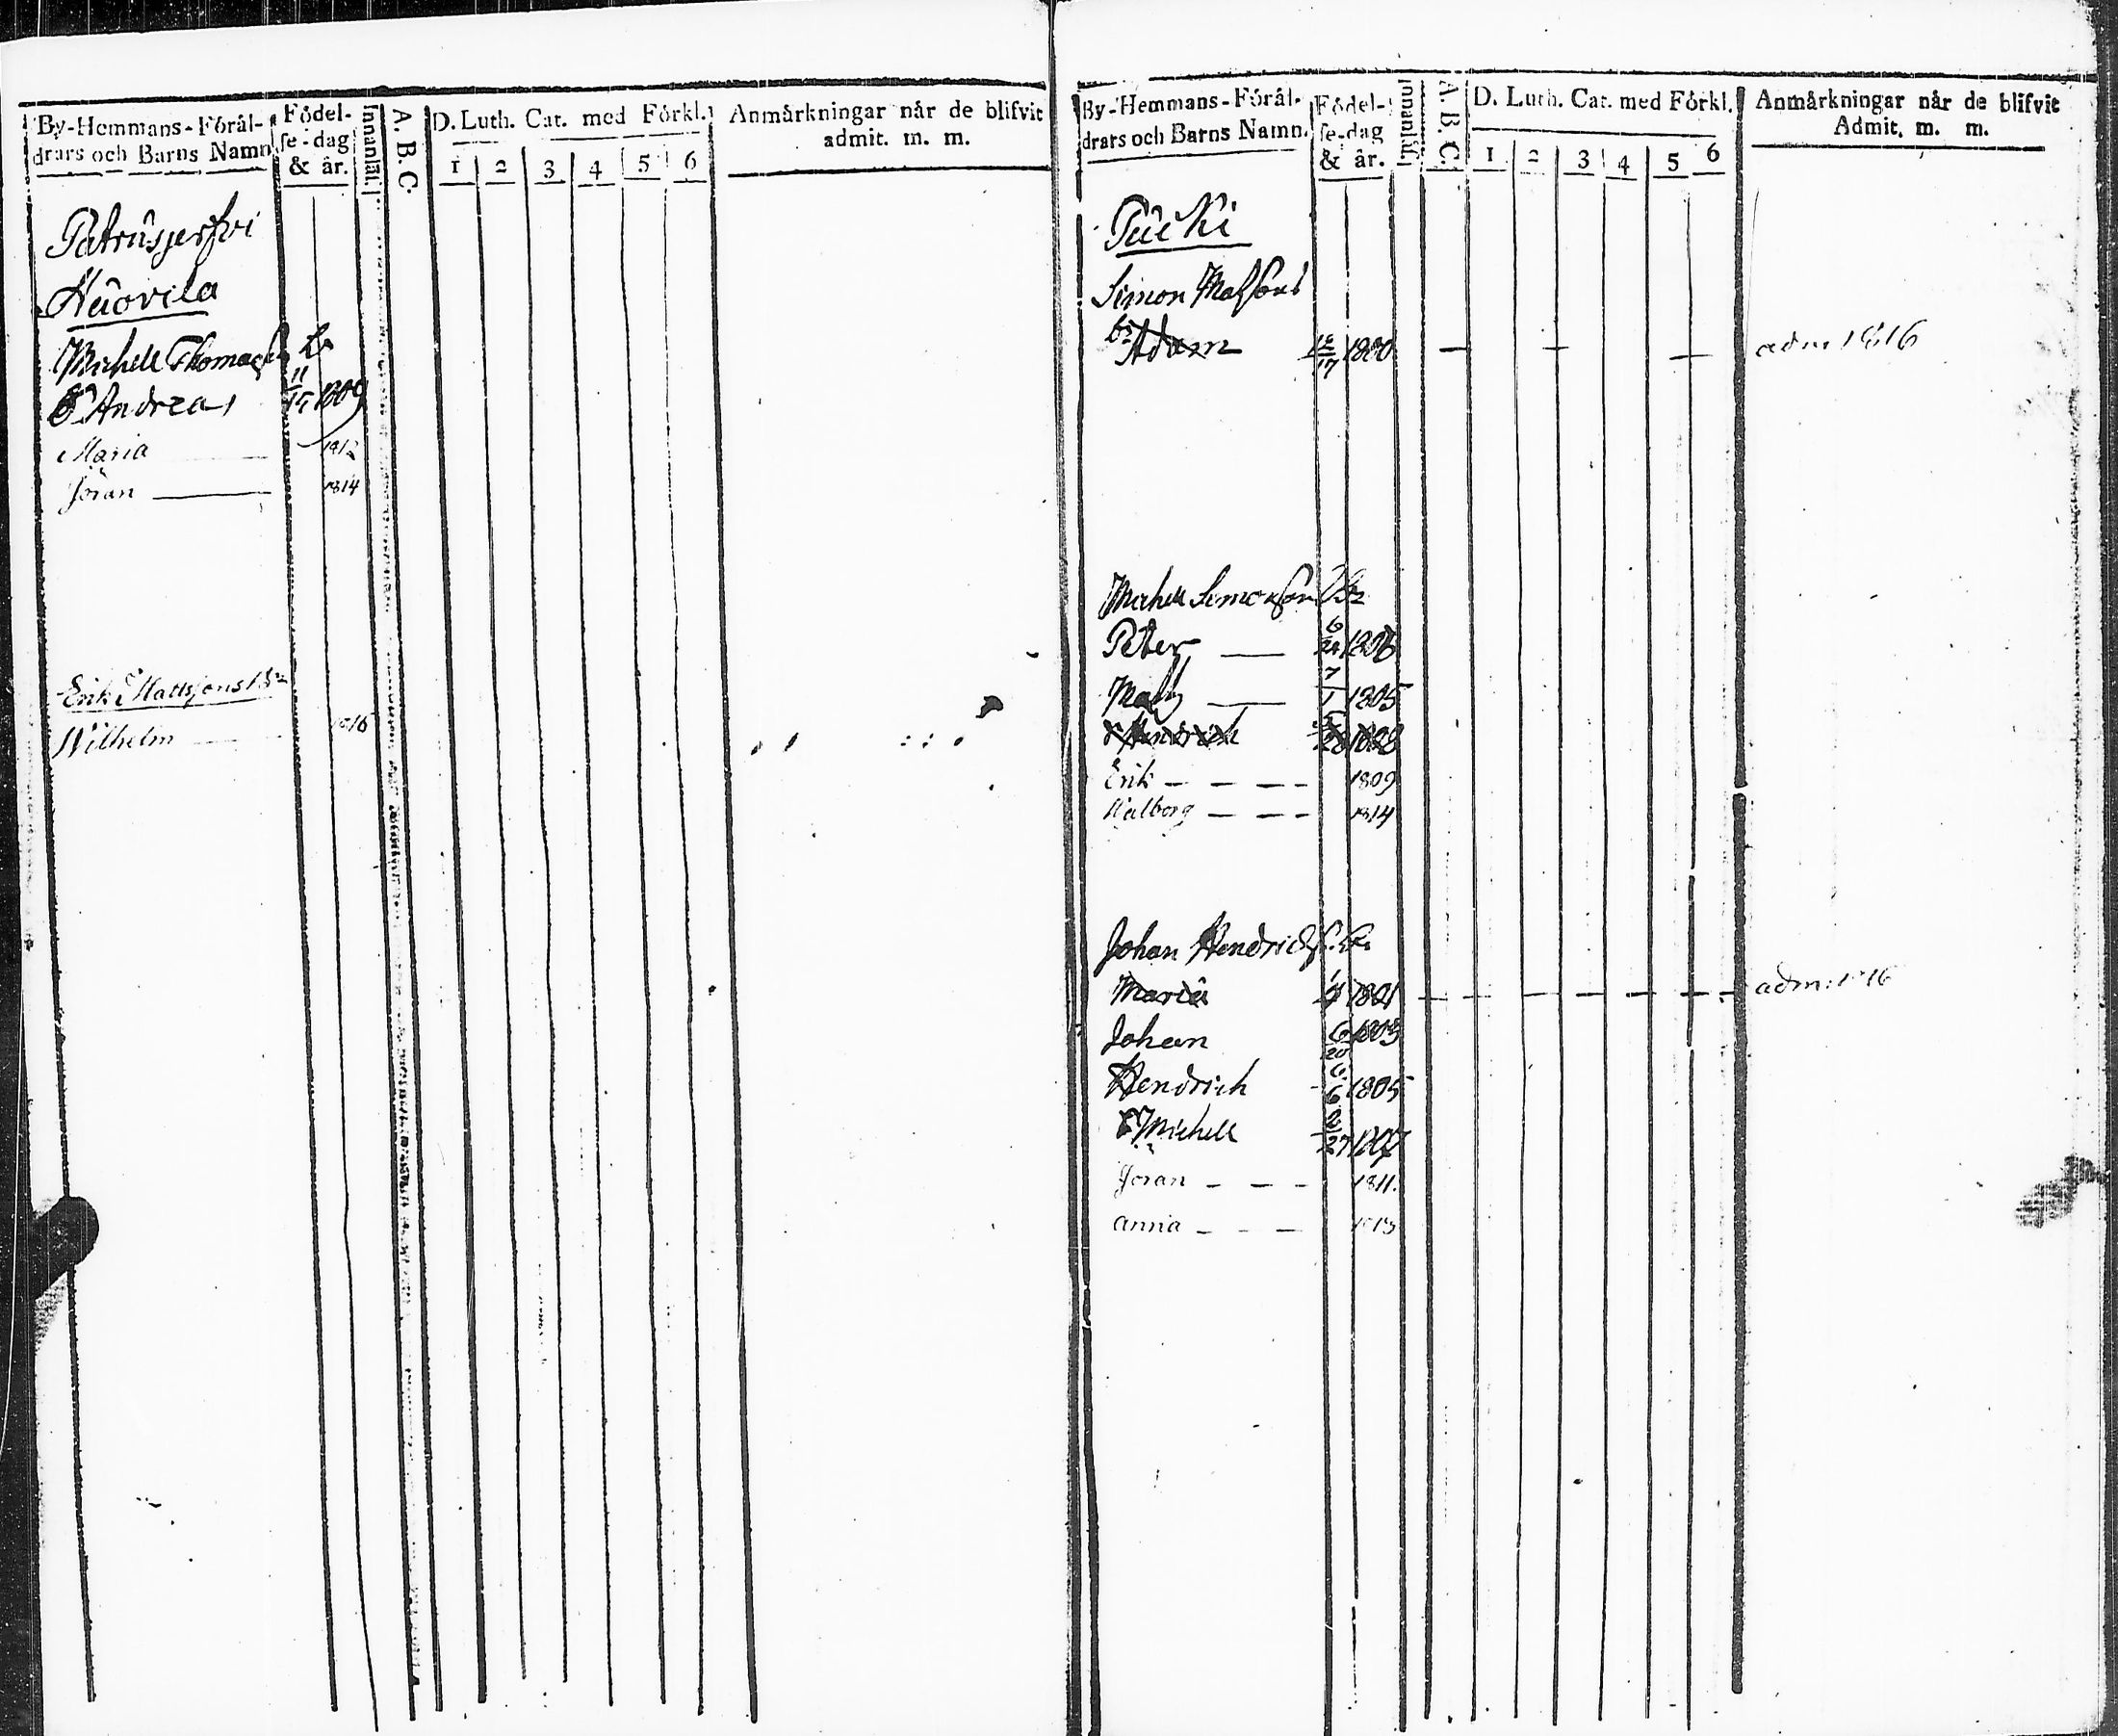 By-Hemmans-Föräl-
drars och Barns Namn
Födel-
se-dag
& år.
Innanläs.
A. B. C.
D. Luth. Cat. med Förkl.
1 2 3 4 5 6
Anmärkningar når de blifvit
admit. m. m.
Patrusjerfvi
Huovila
Michell Thomass
Andreas 11 1809
Maria 1812
Jöran 1814
Erik Mattssons Br
Wilhelm 1816
By-Hemmans-Föräl-
drars och Barns Namn.
Födel-
se-dag
& år.
Innanläs.
A. B. C.
D. Luth. Cat. med Förkl.
1 2 3 4 5 6
Anmärkningar når de blifvit
Admit. m. m.
Simon Matsons
Adam 17 1800 adm 1816
Michell Simonsson
Peter 6 1806
Mats 7 1 1805
Hendrich 1808
Erik 1809
Walborg 1814
Johan Hendrichs
Maria 1801 adm: 1816
Johan 6 20 1803
Hendrich 6 1805
Michell 27 1807
Jöran 1811.
Anna